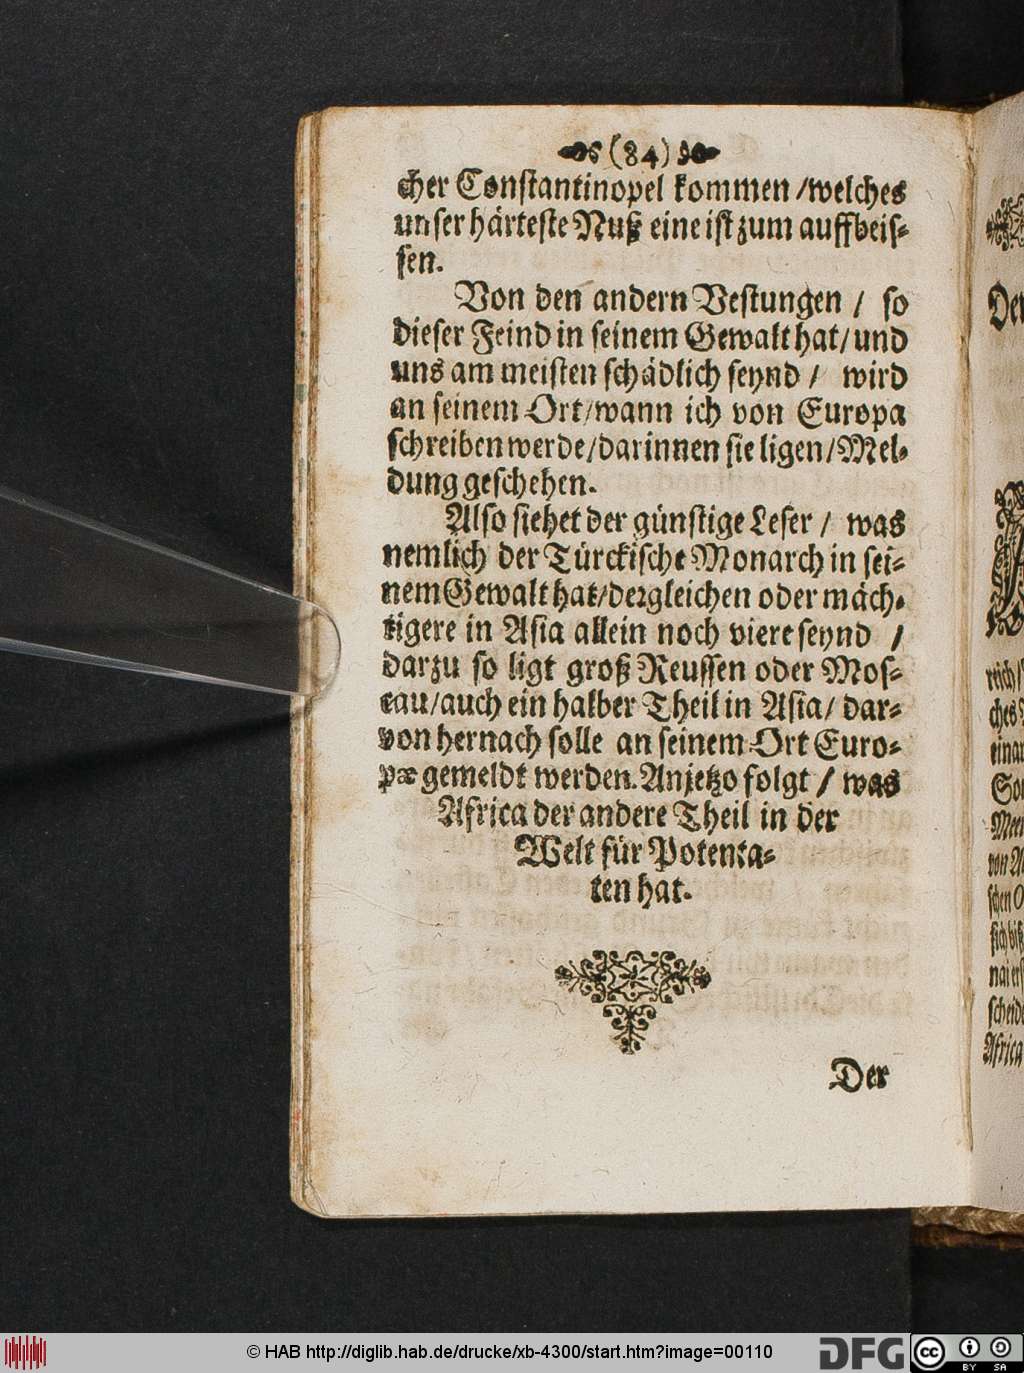 (84)
cher Constantinopel kommen / welches
unser härteste Nuß eine ist zum auffbeis-
sen.
Von den andern Vestungen / so
dieser Feind in seinem Gewalt hat / und
uns am meisten schädlich seynd / wird
an seinem Ort / wann ich von Europa
schreiben werde / darinnen sie ligen / Mel-
dung geschehen.
Also siehet der günstige Leser / was
nemlich der Türckische Monarch in sei-
nem Gewalt hat / dergleichen oder mäch-
tigere in Asia allein noch viere seynd /
darzu so ligt groß Reussen oder Mos-
cau / auch ein halber Theil in Asia / dar-
von hernach solle an seinem Ort Euro-
pæ gemeldt werden. Anjetzo folgt / was
Africa der andere Theil in der
Welt für Potenta-
ten hat.
Der
reich
ches
Africa
© HAB http://diglib.hab.de/drucke/xb-4300/start.htm?image=00110
DFG
cc
BY SA